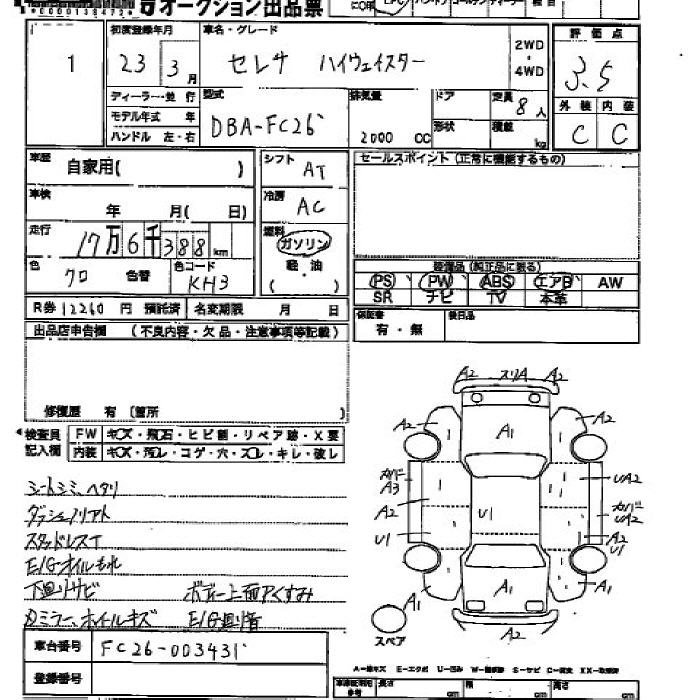 *0000013847
オークション出品票
初度登録年月
車名・グレード
2WD
・
4WD
評価点
1
23
3
月
セレナ ハイウェイスター
3.5
ディーラー・並行
モデル年式 年
ハンドル 左・右
型式
DBA-FC26
排気量
2000 CC
ドア
形状
定員
8人
積載
kg
外装
内装
C
C
車歴
自家用( )
シフト
AT
セールスポイント (正常に機能するもの)
車検
年 月( 日)
冷房
AC
走行
17万6千388km
燃料
ガソリン
軽油
( )
色
クロ
色替
色コード
KH3
装備品 (純正品に限る)
PS PW ABS エアB AW
SR ナビ TV 本革
R券 12260 円 預託済
名変期限 月 日
保証書
有・無
後日品
出品店申告欄 (不良内容・欠品・注意事項等記載)
修復歴 有 〔箇所 〕
検査員
記入欄
FW キズ・飛石・ヒビ割・リペア跡・X要
内装 キズ・汚レ・コゲ・穴・スレ・キレ・破レ
シートシミ、ヘタリ
ダッシュノリアト
スタッドレスT
E/Gオイルもれ
下廻りサビ
ボデー上面クスミ
カミラー、ホイルキズ
E/G異音
A2 スリA A2
A2
A1
A2
カバー
A3
UA2
A2
カバー
UA2
U1
U1
A2
U1
A1
A1
A1
A2
スペア
車台番号
FC26-003431
登録番号
A－線キズ E－エクボ U－凹み W－補修跡 S－サビ C－腐食 XX－取替済
長さ
cm
幅
cm
高さ
cm